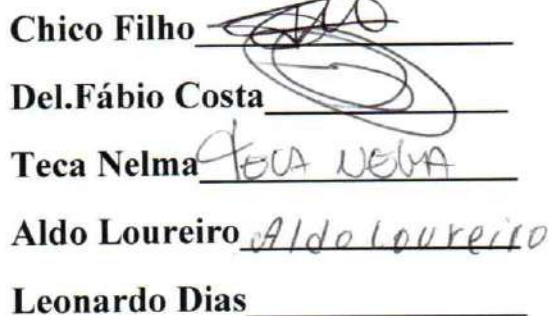 Chico Filho
Del.Fábio Costa
Teca Nelma TECA NELMA
Aldo Loureiro Aldo Loureiro
Leonardo Dias